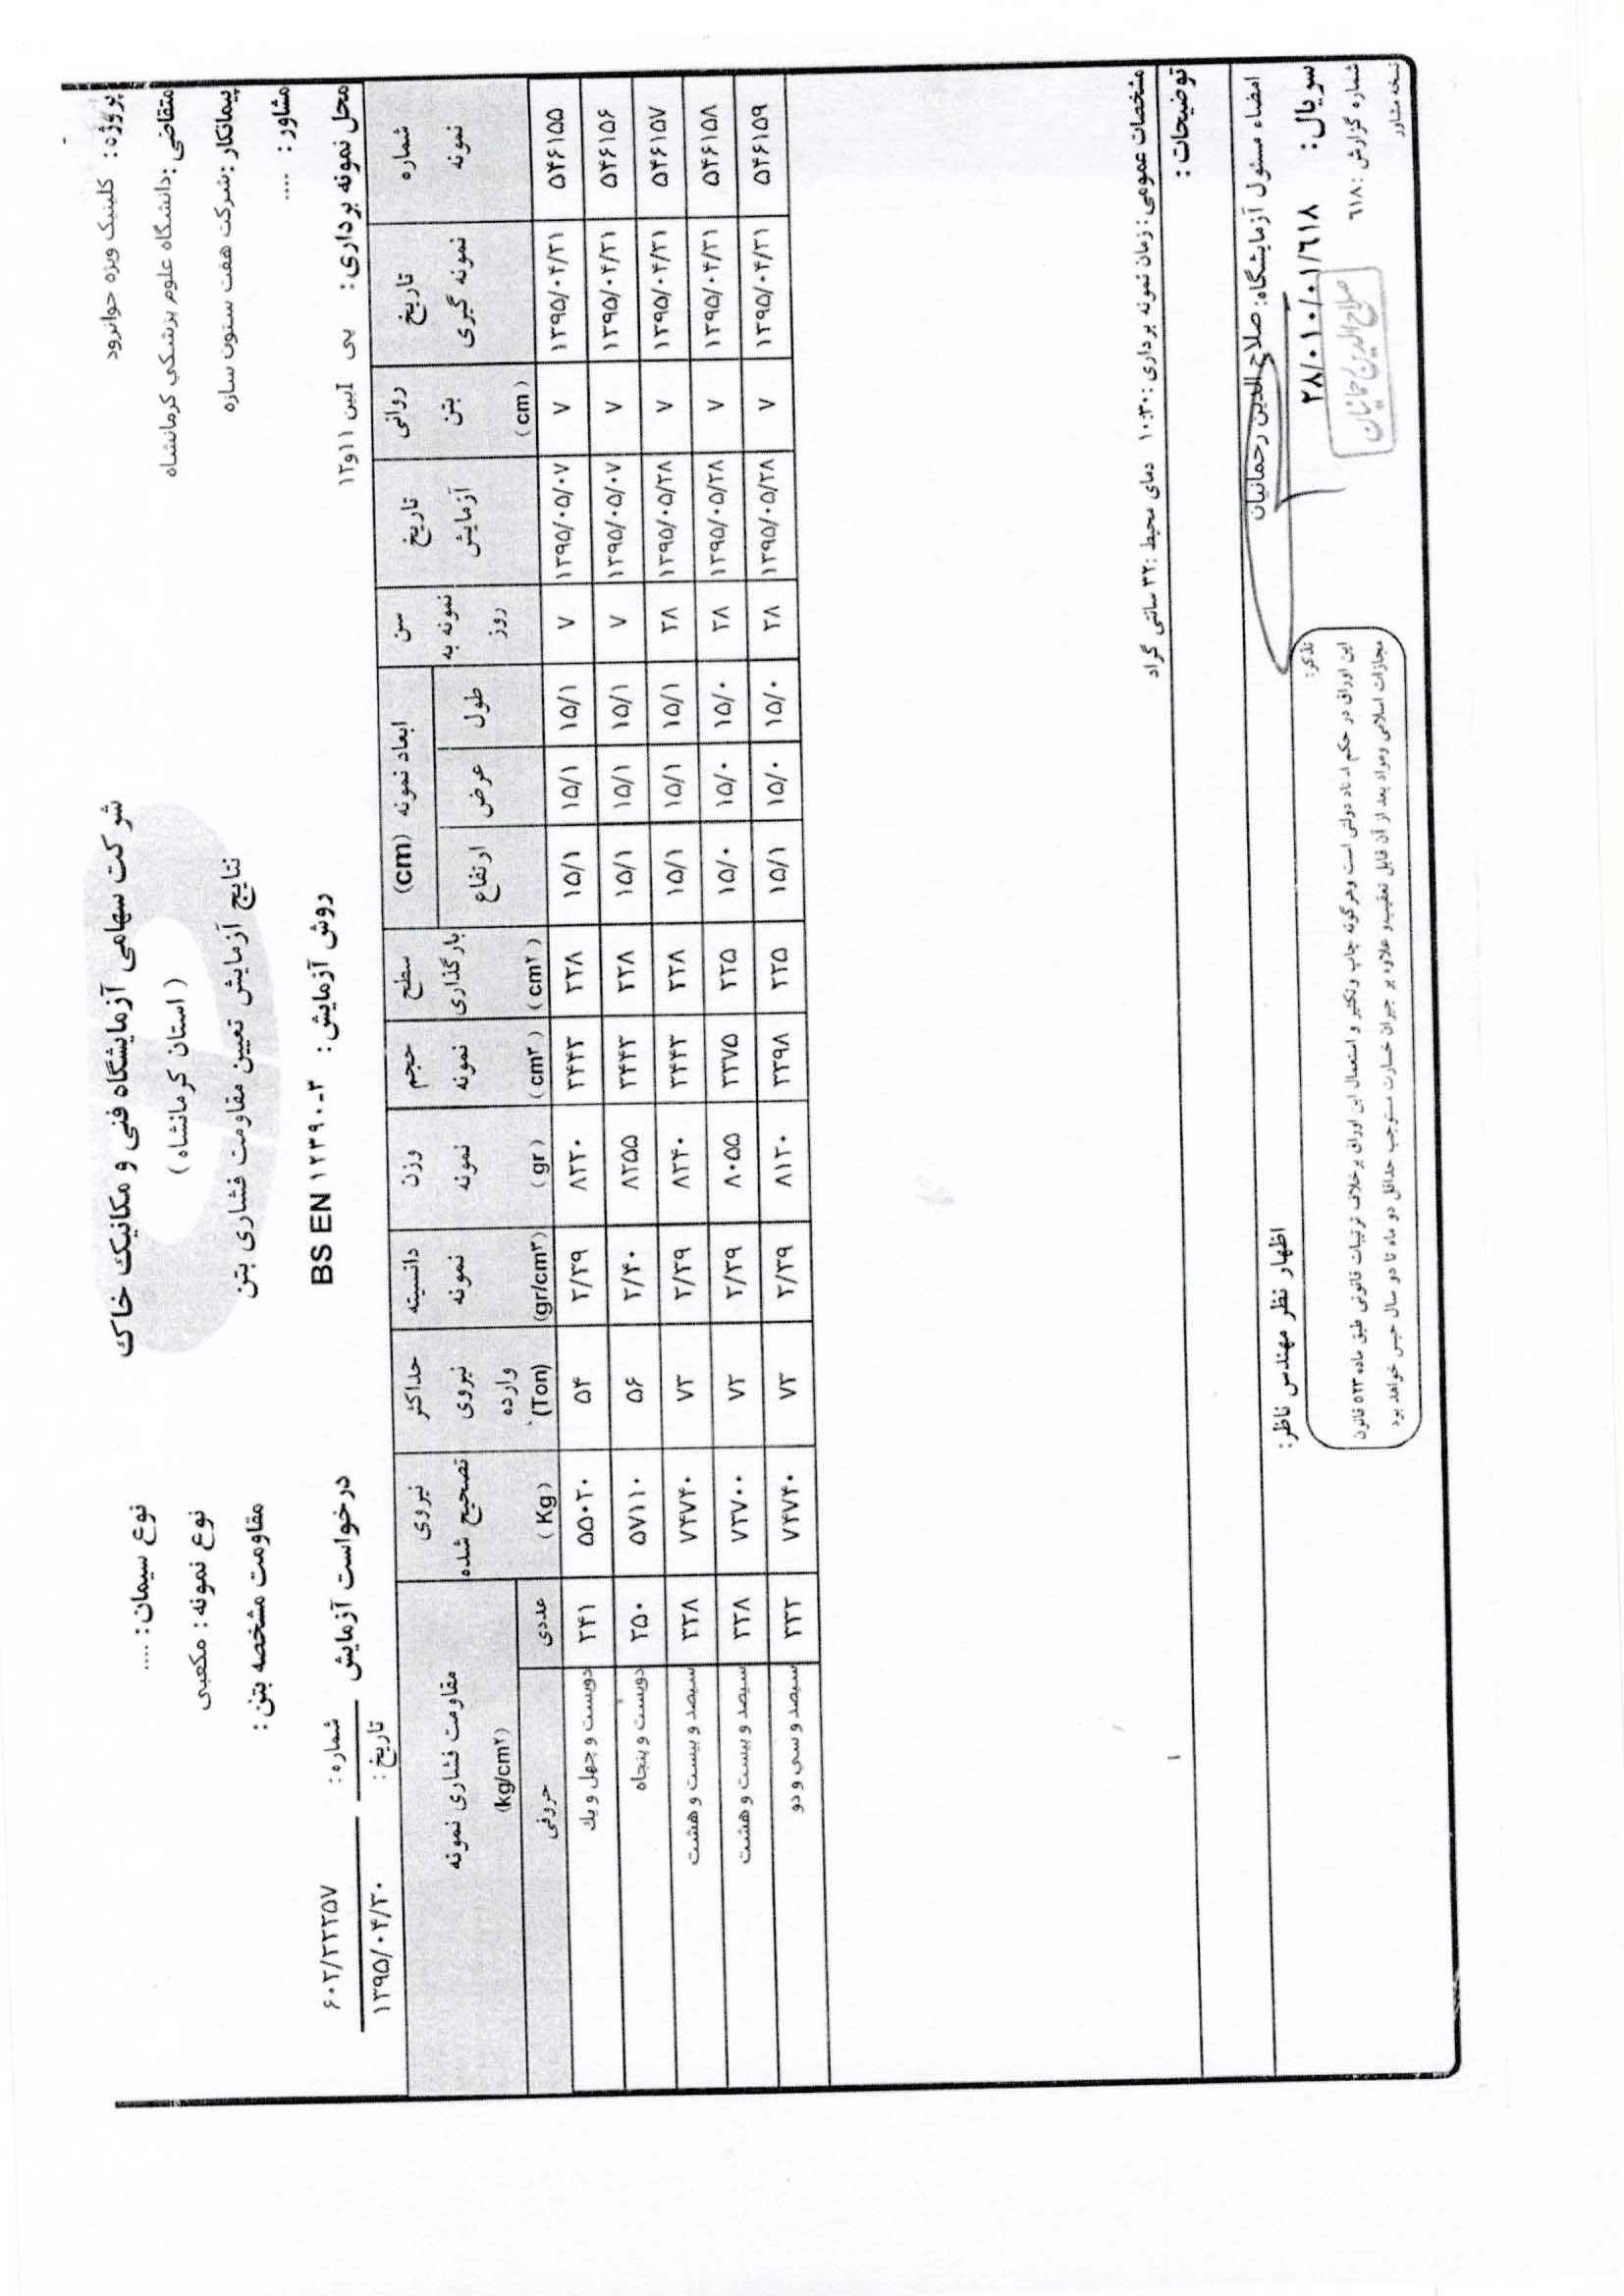 شرکت سهامی آزمایشگاه فنی و مکانیک خاک
( استان کرمانشاه )
نتایج آزمایش تعیین مقاومت فشاری بتن
روش آزمایش : BS EN ۱۲۳۹۰-۳
پروژه : کلینیک ویژه جوانرود
متقاضی : دانشگاه علوم پزشکی کرمانشاه
پیمانکار : شرکت هفت ستون سازه
مشاور : ....
محل نمونه برداری : پی آیین ۱۱و۱۲
نوع سیمان : ....
نوع نمونه : مکعبی
مقاومت مشخصه بتن :
درخواست آزمایش
شماره : ۶۰۲/۲۲۲۵۷
تاریخ : ۱۳۹۵/۰۴/۳۰
شماره نمونه | تاریخ نمونه گیری | روانی بتن (cm) | تاریخ آزمایش | سن نمونه به روز | ابعاد نمونه (cm) طول | عرض | ارتفاع | سطح بارگذاری (cm۲) | حجم نمونه (cm۳) | وزن نمونه (gr) | دانسیته نمونه (gr/cm۳) | حداکثر نیروی وارده (Ton) | نیروی تصحیح شده (Kg) | مقاومت فشاری نمونه (kg/cm۲) عددی | حروفی
۵۴۶۱۵۵ | ۱۳۹۵/۰۴/۳۱ | ۷ | ۱۳۹۵/۰۵/۰۷ | ۷ | ۱۵/۱ | ۱۵/۱ | ۱۵/۱ | ۲۲۸ | ۳۴۴۳ | ۸۲۳۰ | ۲/۳۹ | ۵۴ | ۵۵۰۲۰ | ۲۴۱ | دویست و چهل و یك
۵۴۶۱۵۶ | ۱۳۹۵/۰۴/۳۱ | ۷ | ۱۳۹۵/۰۵/۰۷ | ۷ | ۱۵/۱ | ۱۵/۱ | ۱۵/۱ | ۲۲۸ | ۳۴۴۳ | ۸۲۵۵ | ۲/۴۰ | ۵۶ | ۵۷۱۱۰ | ۲۵۰ | دویست و پنجاه
۵۴۶۱۵۷ | ۱۳۹۵/۰۴/۳۱ | ۷ | ۱۳۹۵/۰۵/۲۸ | ۲۸ | ۱۵/۱ | ۱۵/۱ | ۱۵/۱ | ۲۲۸ | ۳۴۴۳ | ۸۲۴۰ | ۲/۳۹ | ۷۳ | ۷۴۷۴۰ | ۳۲۸ | سیصد و بیست و هشت
۵۴۶۱۵۸ | ۱۳۹۵/۰۴/۳۱ | ۷ | ۱۳۹۵/۰۵/۲۸ | ۲۸ | ۱۵/۰ | ۱۵/۰ | ۱۵/۰ | ۲۲۵ | ۳۳۷۵ | ۸۰۵۵ | ۲/۳۹ | ۷۲ | ۷۳۷۰۰ | ۳۲۸ | سیصد و بیست و هشت
۵۴۶۱۵۹ | ۱۳۹۵/۰۴/۳۱ | ۷ | ۱۳۹۵/۰۵/۲۸ | ۲۸ | ۱۵/۰ | ۱۵/۰ | ۱۵/۱ | ۲۲۵ | ۳۳۹۸ | ۸۱۳۰ | ۲/۳۹ | ۷۳ | ۷۴۷۴۰ | ۳۳۲ | سیصد و سی و دو
مشخصات عمومی : زمان نمونه برداری : ۱۰:۳۰ دمای محیط : ۳۲ سانتی گراد
توضیحات :
امضاء مسئول آزمایشگاه: صلاح الدین رحمانیان
اظهار نظر مهندس ناظر:
سریال : ۲۸/۰۱۰/۰۱/۶۱۸
شماره گزارش : ۶۱۸
نسخه مشاور
صلاح الدین رحمانیان
تذکر:
این اوراق در حکم اسناد دولتی است وهرگونه چاپ وتکثیر و استعمال این اوراق برخلاف ترتیبات قانونی طبق ماده ۵۲۳ قانون
مجازات اسلامی ومواد بعد از آن قابل تعقیب و علاوه بر جبران خسارت مستوجب حداقل دو ماه تا دو سال حبس خواهد بود